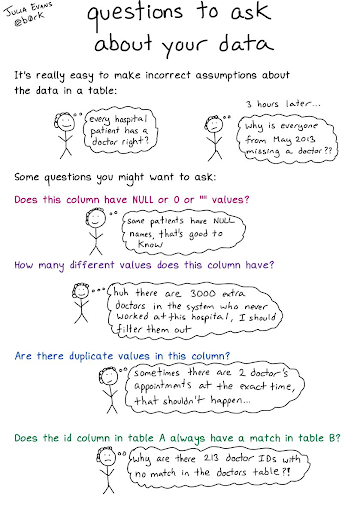 JULIA EVANS
@b0rk
questions to ask
about your data
It's really easy to make incorrect assumptions about
the data in a table:
every hospital
patient has a
doctor right?
3 hours later...
why is everyone
from May 2013
missing a doctor??
Some questions you might want to ask:
Does this column have NULL or 0 or "" values?
some patients have NULL
names, that's good to
know
How many different values does this column have?
huh there are 3000 extra
doctors in the system who never
worked at this hospital, I should
filter them out
Are there duplicate values in this column?
sometimes there are 2 doctor's
appointments at the exact time,
that shouldn't happen...
Does the id column in table A always have a match in table B?
why are there 213 doctor IDs with
no match in the doctors table?!